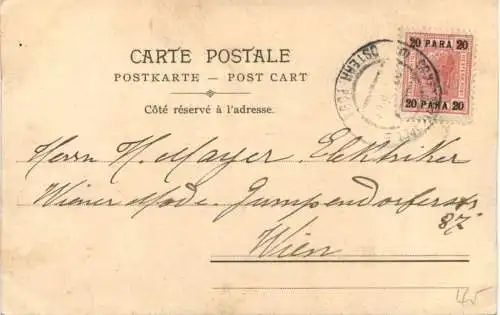 20 PARA 20
20 PARA 20
CARTE POSTALE
POSTKARTE — POST CART
Côté réservé à l'adresse.
ÖSTERR. POST
Herrn H. Mayer, Elektriker
Wiener Mode. Gumpendorferstr
87
Wien
45